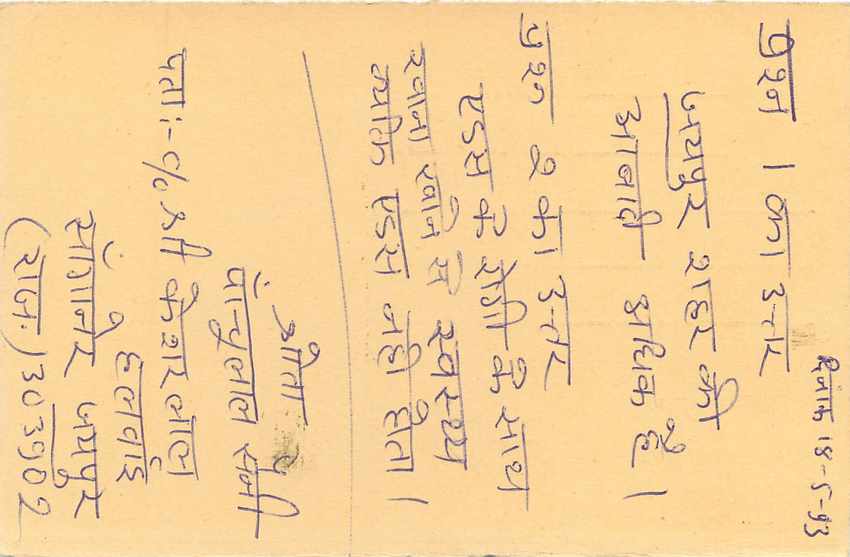 दिनांक 18-5-93
प्रश्न 1 का उत्तर
जयपुर शहर की
आबादी अधिक है।
प्रश्न 2 का उत्तर
एडस के रोगी के साथ
खाना खाने से स्वस्थ
व्यक्ति एडस नही होता।
श्रोता
पांचुलाल सैनी
पता:- c/o श्री केशरलाल
हलवाई
सांगानेर जयपुर
(राज.) 303902